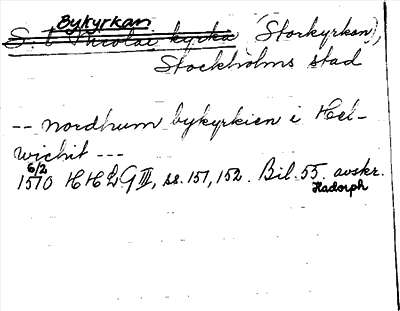 Bykyrkan
S:t Nicolai kyrka (Storkyrkan),
Stockholms stad
-- nordhum bykyrkien i Hel-
wichit ---
6/2
1570 HHLG III, ss. 151, 152. Bil. 55. avskr.
Hadorph